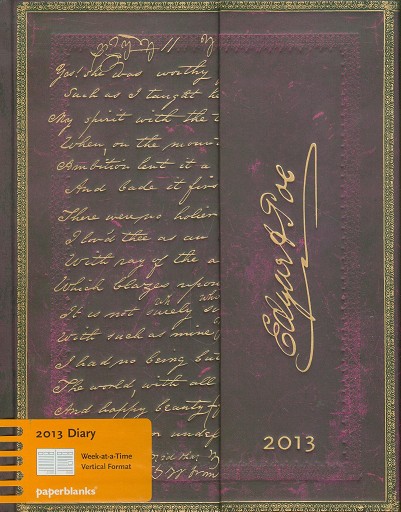 Yes! she was worthy
Such as I taught he
My spirit with the t
When, on the moun
Ambition lent it a
And bade it firs
There were no holier
I lov'd thee as an
With ray of the a
Which blazes upon
It is not surely s
With such as mine
I had no being but
The world, with all
And happy beauty
undef
Edgar A Poe
2013
2013 Diary
Week-at-a-Time
Vertical Format
paperblanks®